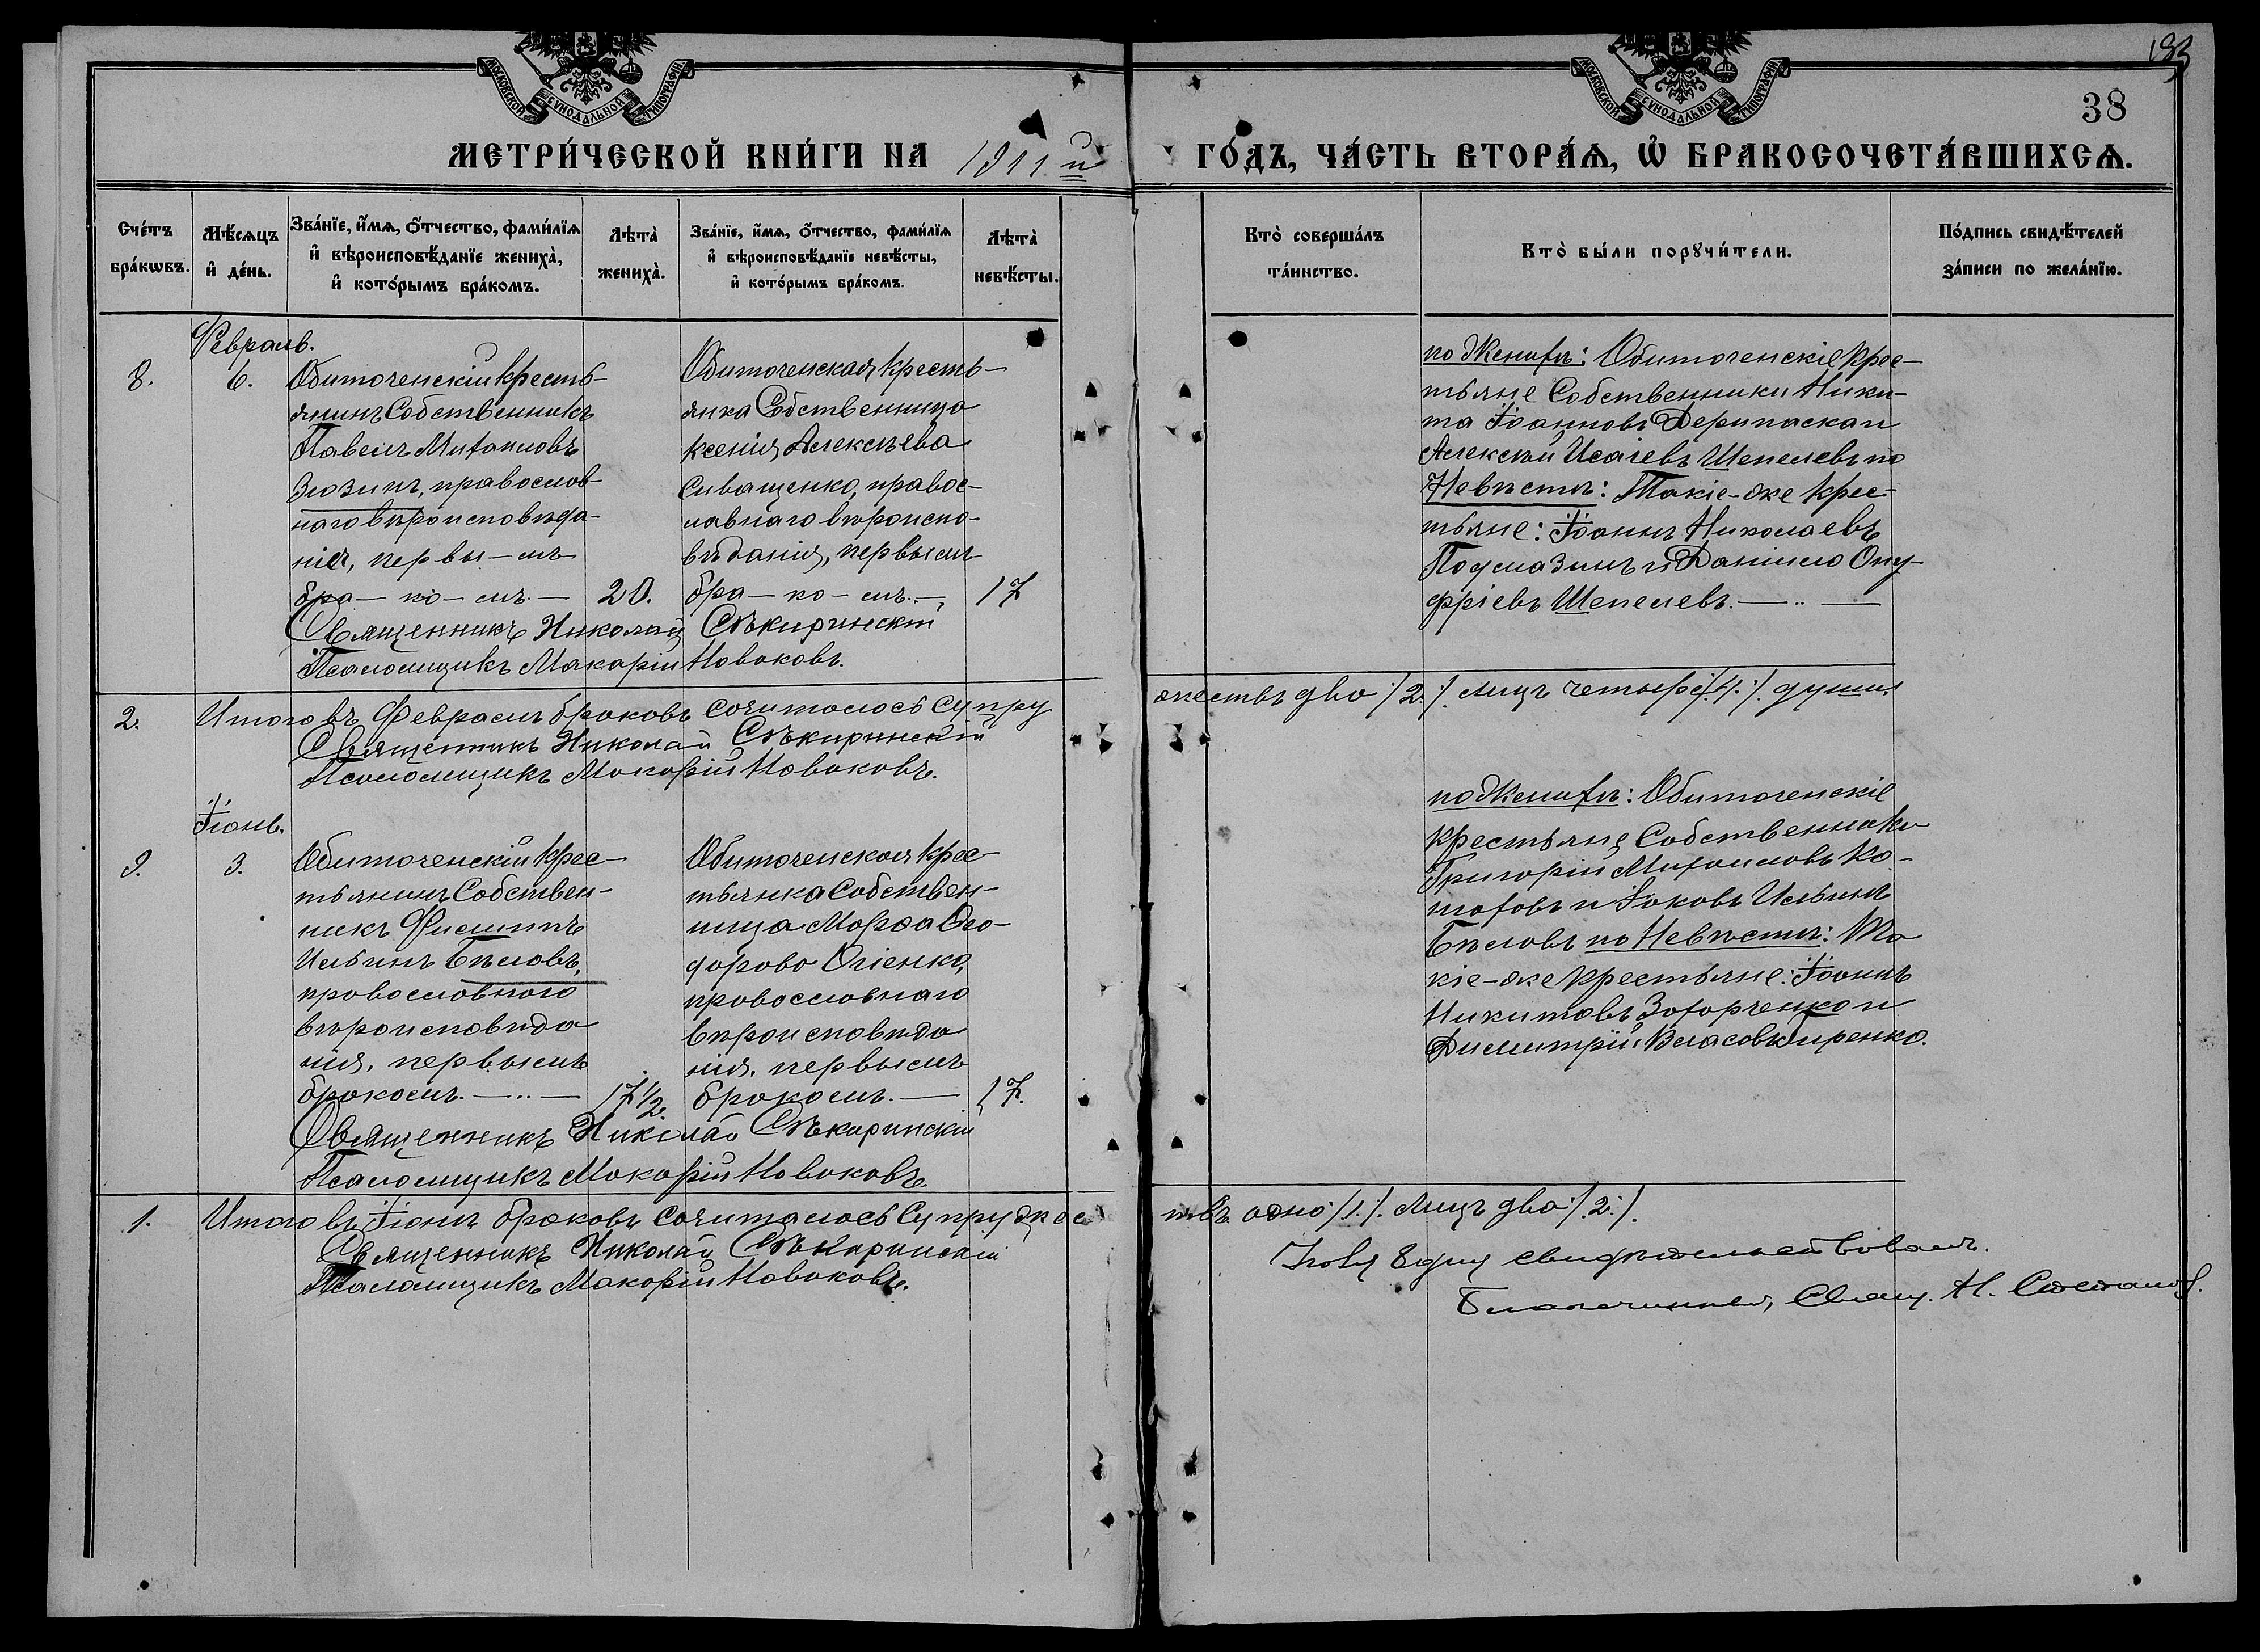 МОСКОВСКОЙ СУНОДАЛЬНОЙ ТИПОГРАФІИ
МОСКОВСКОЙ СУНОДАЛЬНОЙ ТИПОГРАФІИ
38
МЕТРИ́ЧЕСКОЙ КНИ́ГИ НА 1911 й ГО́ДЪ, ЧА́СТЬ ВТОРА́Ѧ, Ѡ҆ БРАКОСОЧЕТА́ВШИХСѦ.
Сче́тъ
бра́кѡвъ.
Мѣ́сѧцъ
и҆ де́нь.
Зва́нїе, и҆́мѧ, ѻ҆́тчество, фами́лїѧ
и҆ вѣроисповѣ́данїе жениха̀,
и҆ кото́рымъ бра́комъ.
Лѣта̀
жениха̀.
Зва́нїе, и҆́мѧ, ѻ҆́тчество, фами́лїѧ
и҆ вѣроисповѣ́данїе невѣ́сты,
и҆ кото́рымъ бра́комъ.
Лѣта̀
невѣ́сты.
Кто̀ соверша́лъ
та́инство.
Кто̀ бы́ли порꙋчи́тели.
По́дпись свидѣ́телей
за́писи по жела́нїю.
Февраль.
8.
6.
Обиточенскій кресть-
янинъ Собственникъ
Павелъ Михаиловъ
Зюзинъ, православ-
наго вѣроисповѣда-
нія, первы-мъ
бра-ко-мъ.-
20.
Обиточенская кресть-
янка Собственница
Ксенія Алексѣева
Сиващенко, правос-
лавнаго вѣроиспо-
вѣданія, первымъ
бра-ко-мъ.-
17
по Женихѣ: Обиточенскіе крес-
тьяне Собственники Ники-
та Іоанновъ Дерипаска и
Алексѣй Исаіевъ Шепелевъ по
Невѣстѣ: Такіе-же крес-
тьяне: Іоаннъ Николаевъ
Подмазинъ и Даніилъ Ону-
фріевъ Шепелевъ.
Священникъ Николай Сѣкиринскій
Псаломщикъ Макарій Новаковъ.
2. Итого въ Февралѣ браковъ сочиталось Супру
жествъ два /2./ лицъ четыре /4./ души
Священникъ Николай Сѣкиринскій
Псаломщикъ Макарій Новаковъ.
Іюнь.
9.
3.
Обиточенскій крес-
тьянинъ Собствен-
никъ Филиппъ
Ильинъ Бѣловъ,
православнаго
вѣроисповѣда
нія, первымъ
бракомъ.
17 1/2.
Обиточенская крес-
тьянка Собствен-
ница Марѳа Ѳео-
дорова Огіенко,
православнаго
вѣроисповѣда
нія, первымъ
бракомъ.
17.
по Женихѣ: Обиточенскіе
крестьяне Собственники
Григорій Михаиловъ Ко-
Іаковъ Ильинъ
Бѣловъ по Невѣстѣ: Та
кіе-же крестьяне: Іоаннъ
Никитовъ Захарченко и
Димитрій Власовъ
Священникъ Николай Сѣкиринскій
Псаломщикъ Макарій Новаковъ.
1. Итого въ Іюнѣ браковъ сочиталось Супружес
твъ одно /1./ лицъ два /2./.
Священникъ Николай Сѣкиринскій
Псаломщикъ Макарій Новаковъ.
свидѣтельствовалъ.
Благочинный, Свящ. Н.